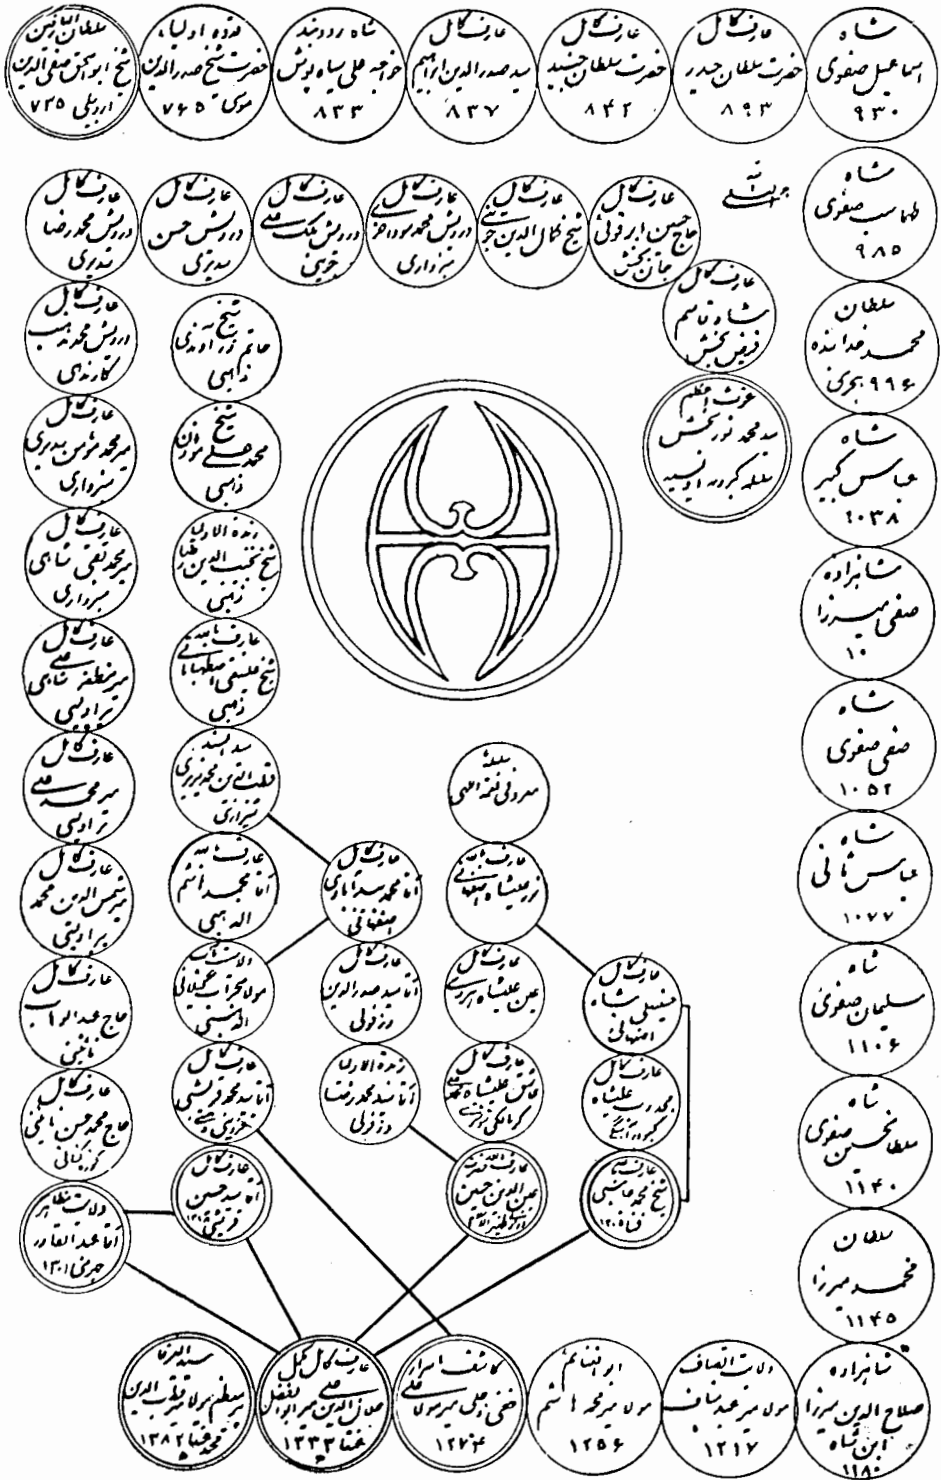 سلطان العارفین
شیخ ابواسحق صفی الدین
اردبیلی ۷۳۵
قدوه اولیاء
حضرت شیخ صدرالدین
موسی ۷۶۵
شاه رودبند
خواجه علی سیاه پوش
۸۳۳
عارف کامل
سید صدرالدین ابراهیم
۸۳۷
عارف کامل
حضرت سلطان جنید
۸۴۲
عارف کامل
حضرت سلطان حیدر
۸۹۳
شاه
اسماعیل صفوی
۹۳۰
شاه
طهماسب صفوی
۹۸۵
سلطان
محمد خدابنده
۹۹۶ هجری
شاه
عباس کبیر
۱۰۳۸
شاهزاده
صفی میرزا
۱۰
شاه
صفی صفوی
۱۰۵۲
شاه
عباس ثانی
۱۰۷۷
شاه
سلیمان صفوی
۱۱۰۶
شاه
سلطانحسین صفوی
۱۱۴۰
سلطان
محمد میرزا
۱۱۴۵
شاهزاده
صلاح الدین میرزا
ابن شاه
۱۱۸۰
ولایت انصاف
مولانا میر عبدمناف
۱۲۱۷
ابوالغنائم
مولانا میر محمد هاشم
۱۲۵۶
کاشف اسرار
خفی و جلی میر مولا علی
۱۲۷۴
عارف کامل مکمل
جلال الدین علی میر ابوالفضل
عنقا ۱۳۳۳
سید العرفا
مولانا میر قطب الدین
محمد عنقا ۱۳۸۲
عارف کامل
حاج حسین ابرقوئی
جان بخش
عارف کامل
شیخ کمال الدین
عارف کامل
درویش محمد
سبزواری
عارف کامل
درویش ملک علی
جوینی
عارف کامل
درویش حسن
سدیری
عارف کامل
درویش محمد رضا
سدیری
عارف کامل
شاه قاسم
فیض بخش
غوث اعظم
سید محمد نوربخش
سلسله کبرویه اویسیه
عارف کامل
درویش محمد مذهب
کارندهی
عارف کامل
میر محمد مؤمن سدیری
سبزواری
عارف کامل
میر محمد تقی شاهی
سبزواری
عارف کامل
میر مظفر علی شاهی
عارف کامل
میر محمد علی
عارف کامل
میر شمس الدین محمد
عارف کامل
حاج عبدالوهاب
نائینی
عارف کامل
حاج محمد حسن نائینی
کوزه کنانی
ولایت مظاهر
آقا عبدالقادر
جهرمی ۱۳۰۱
شیخ
حاتم زراوندی
ذهبی
شیخ
محمد علی مؤذن
ذهبی
زبدة الاولیا
شیخ نجیب الدین رضا
ذهبی
عارف بالله
شیخ علینقی اصطهباناتی
ذهبی
سید السند
قطب الدین محمد نیریزی
شیرازی
عارف بالله
آقا محمد هاشم
الذهبی
مولانا محراب گیلانی
الذهبی
عارف کامل
آقا سید محمد قریشی
قزوینی
عارف کامل
آقا سید حسین
قریشی
عارف کامل
آقا محمد بیدآبادی
اصفهانی
عارف کامل
آقا سید صدرالدین
دزفولی
زبدة الاولیا
آقا سید محمد رضا
دزفولی
سلسله
معروفی نعمة اللهی
عارف بالله
نورعلیشاه اصفهانی
عارف کامل
عین علیشاه هروی
عارف کامل
عین الدین حسین
عارف کامل
فیضعلی شاه
اصفهانی
عارف کامل
مجذوب علیشاه
عارف
شیخ محمد
فنا ۱۲۰۵